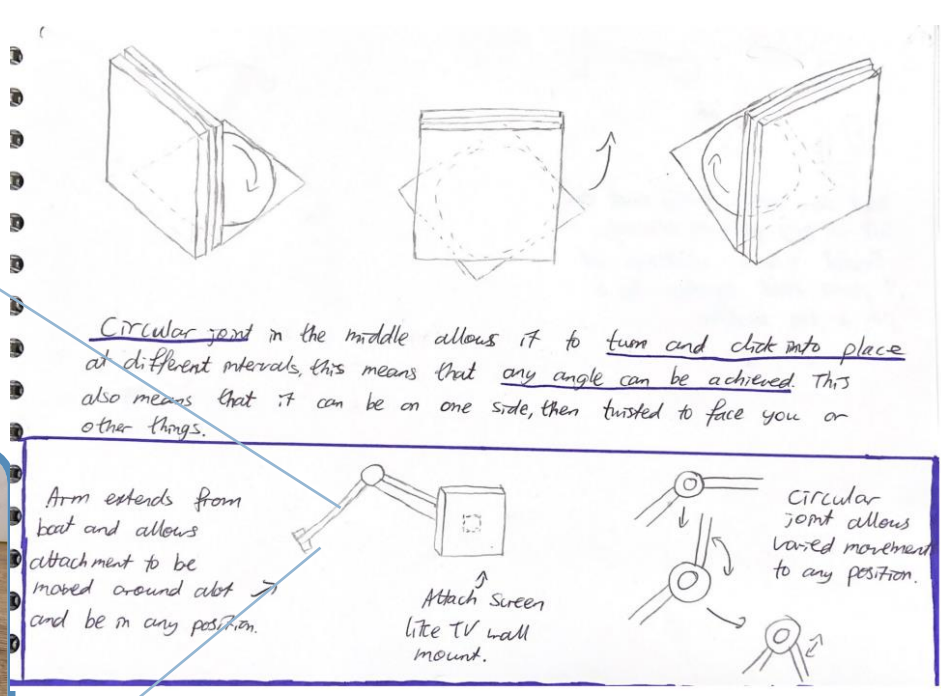 Circular joint in the middle allows it to turn and click into place
at different intervals, this means that any angle can be achieved. This
also means that it can be on one side, then twisted to face you or
other things.
Arm extends from
boat and allows
attachment to be
moved around alot
and be in any position.
Attach Screen
like TV wall
mount.
Circular
joint allows
varied movement
to any position.